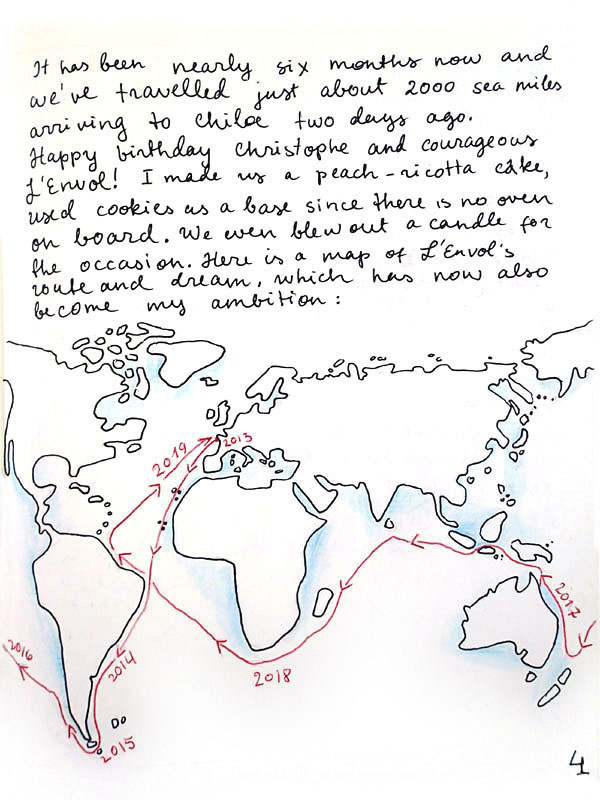 It has been nearly six months now and
we've travelled just about 2000 sea miles
arriving to Chiloe two days ago.
Happy birthday Christophe and courageous
L'Envol! I made us a peach-ricotta cake,
used cookies as a base since there is no oven
on board. We even blew out a candle for
the occasion. Here is a map of L'Envol's
route and dream, which has now also
become my ambition:
2019
2013
2017
2016
2014
2018
2015
4